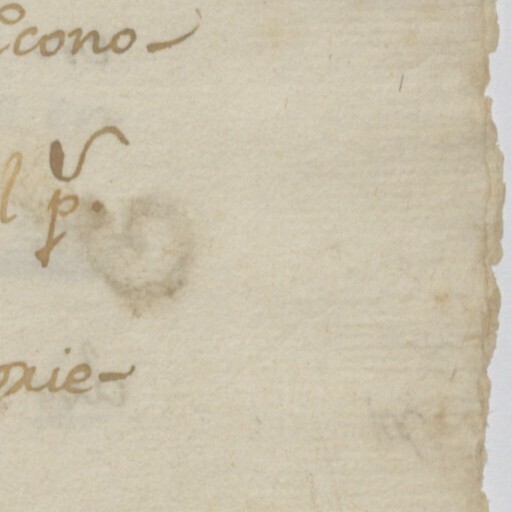 Econo-
l p.
oxie-